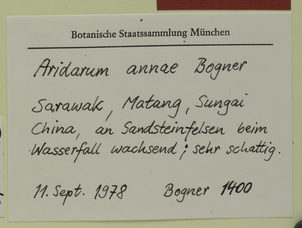 Botanische Staatssammlung München
Aridarum annae Bogner
Sarawak, Matang, Sungai
China, an Sandsteinfelsen beim
Wasserfall wachsend; sehr schattig.
11. Sept. 1978 Bogner 1400